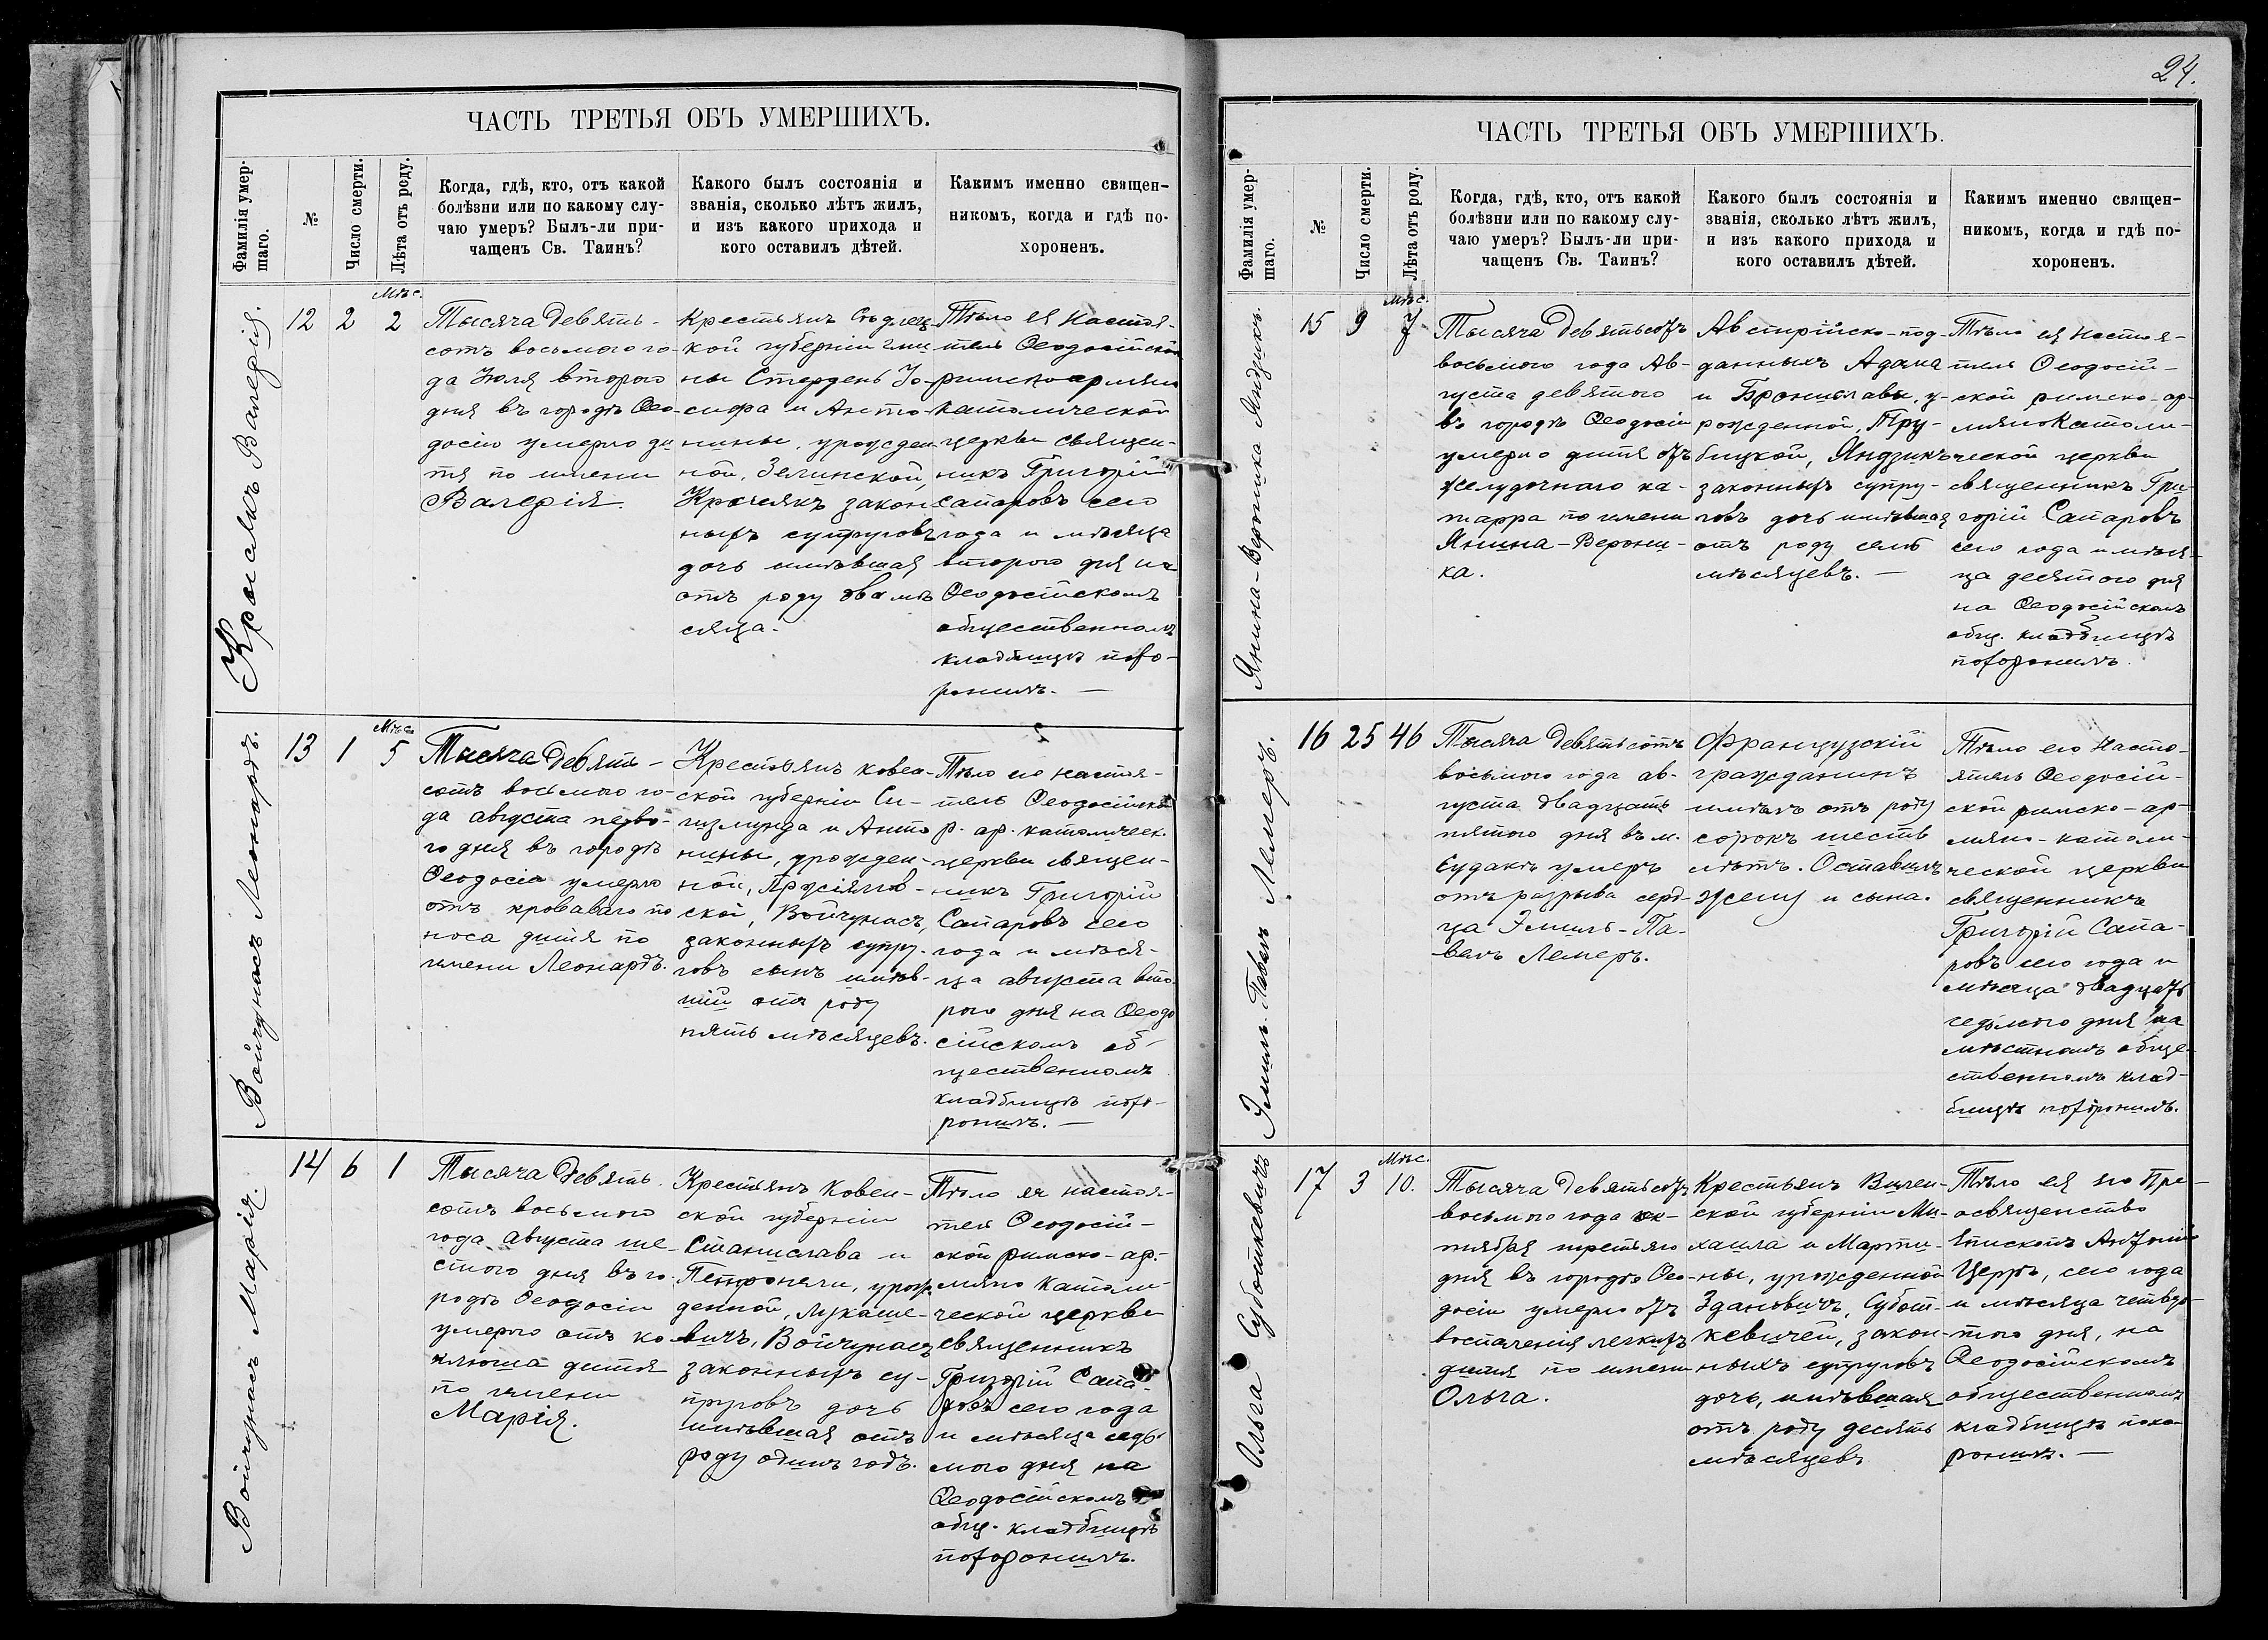 ЧАСТЬ ТРЕТЬЯ ОБЪ УМЕРШИХЪ.
Фамилія умер-
шаго.
№
Число смерти.
Лѣта отъ роду.
Когда, гдѣ, кто, отъ какой
болѣзни или по какому слу-
чаю умеръ? Былъ-ли при-
чащенъ Св. Таинъ?
Какого былъ состоянія и
званія, сколько лѣтъ жилъ,
и изъ какого прихода и
кого оставилъ дѣтей.
Какимъ именно священ-
никомъ, когда и гдѣ по-
хороненъ.
Валерія.
12
2
Мѣс.
2
Тысяча девять-
сотъ восьмого го-
да Іюля второго
дня въ городѣ Ѳео-
досіи умерло ди
тя по имени
Валерія.
Крестьянъ Сѣдлец-
кой губерніи гми
ны Стердень Іо-
сифа и Анто-
нины, урожден
ной, Зелинской,
закон
ныхъ супруговъ
дочь имѣвшая
отъ роду два мѣ
сяца.
Тѣло ея настоя-
тель Ѳеодосійской
римско армяно
католической
церкви священ-
никъ Григорій
Сапаровъ сего
года и мѣсяца
второго дня на
Ѳеодосійскомъ
общественномъ
кладбищѣ похо-
ронилъ. —
Войчунасъ Леонардъ.
13
1
Мѣс.
5
Тысяча девять-
сотъ восьмого го-
да августа перво-
го дня въ городѣ
Ѳеодосіи умерло
отъ кроваваго по
носа дитя по
имени Леонардъ.
Крестьянъ Ковен-
ской губерніи Си-
гизмунда и Анто
нины, урожден-
ной,
ской, Войчунасъ,
законныхъ супру-
говъ сынъ имѣв-
шій отъ роду
пять мѣсяцевъ.
Тѣло его настоя-
тель Ѳеодосійской
р. ар. католическ.
церкви священ-
никъ Григорій
Сапаровъ сего
года и мѣся-
ца августа вто-
рого дня на Ѳеодо
сійскомъ об-
щественномъ
кладбищѣ похо-
ронилъ. —
Войчунасъ Марія.
14
6
1
Тысяча девять
сотъ восьмого
года августа ше-
стого дня въ го-
родѣ Ѳеодосіи
умерло отъ ко
клюша дитя
по имени
Марія.
Крестьянъ Ковен-
ской губерніи
Станислава и
Петронели, урож-
денной, Лукаше-
вичъ, Войчунасъ
законныхъ су-
пруговъ дочь
имѣвшая отъ
роду одинъ годъ.
Тѣло ея настоя-
тель Ѳеодосій-
ской римско-ар-
мяно католи-
ческой церкви
священникъ
Григорій Сапа-
ровъ сего года
и мѣсяца седь-
мого дня на
Ѳеодосійскомъ
общ. кладбищѣ
похоронилъ.
24.
ЧАСТЬ ТРЕТЬЯ ОБЪ УМЕРШИХЪ.
Фамилія умер-
шаго.
№
Число смерти.
Лѣта отъ роду.
Когда, гдѣ, кто, отъ какой
болѣзни или по какому слу-
чаю умеръ? Былъ-ли при-
чащенъ Св. Таинъ?
Какого былъ состоянія и
званія, сколько лѣтъ жилъ,
и изъ какого прихода и
кого оставилъ дѣтей.
Какимъ именно священ-
никомъ, когда и гдѣ по-
хороненъ.
Янина-Вероника Яндзикъ.
15
9
Мѣс.
7
Тысяча девятьсотъ
восьмого года Ав-
густа девятого
въ городѣ Ѳеодосіи
умерло дитя отъ
желудочнаго ка-
тарра по имени
Янина-Верони-
ка.
Австрійско-под-
данныхъ Адама
и Брониславы, у-
рожденной, Тру-
бицкой, Яндзикъ
законныхъ супру-
говъ дочь имѣвшая
отъ роду семь
мѣсяцевъ. —
Тѣло ея настоя-
тель Ѳеодосій-
ской римско-ар-
мяно католи-
ческой церкви
священникъ Гри-
горій Сапаровъ
сего года и мѣся-
ца десятого дня
на Ѳеодосійскомъ
общ. кладбищѣ
похоронилъ.
Эмиль-Павелъ Лемеръ.
16
25
46
Тысяча девятьсотъ
восьмого года ав-
густа двадцать
пятого дня въ м.
Судакѣ умеръ
отъ разрыва серд-
ца Эмиль-Па-
велъ Лемеръ.
Французскій
гражданинъ
имѣлъ отъ роду
сорокъ шесть
лѣтъ. Оставилъ
жену и сына.
Тѣло его насто-
ятель Ѳеодосій-
ской римско-ар-
мяно-католи-
ческой церкви
священникъ
Григорій Сапа-
ровъ сего года и
мѣсяца двадцать
седьмого дня на
мѣстномъ обще-
ственномъ клад-
бищѣ похоронилъ.
Ольга Суботкевичъ
17
3
Мѣс.
10.
Тысяча девятьсотъ
восьмого года ок-
тября третьяго
дня въ городѣ Ѳео-
досіи умерло отъ
воспаленія легкихъ
дитя по имени
Ольга.
Крестьянъ Вилен-
ской губерніи Ми-
хаила и Марти-
ны, урожденной
Здановичъ, Субот-
кевичей, закон-
ныхъ супруговъ
дочь, имѣвшая
отъ роду десять
мѣсяцевъ
Тѣло ея Его Пре-
освященство
Епископъ Антоній
Церръ, сего года
и мѣсяца четвер-
того дня, на
Ѳеодосійскомъ
общественномъ
кладбищѣ похо-
ронилъ. —